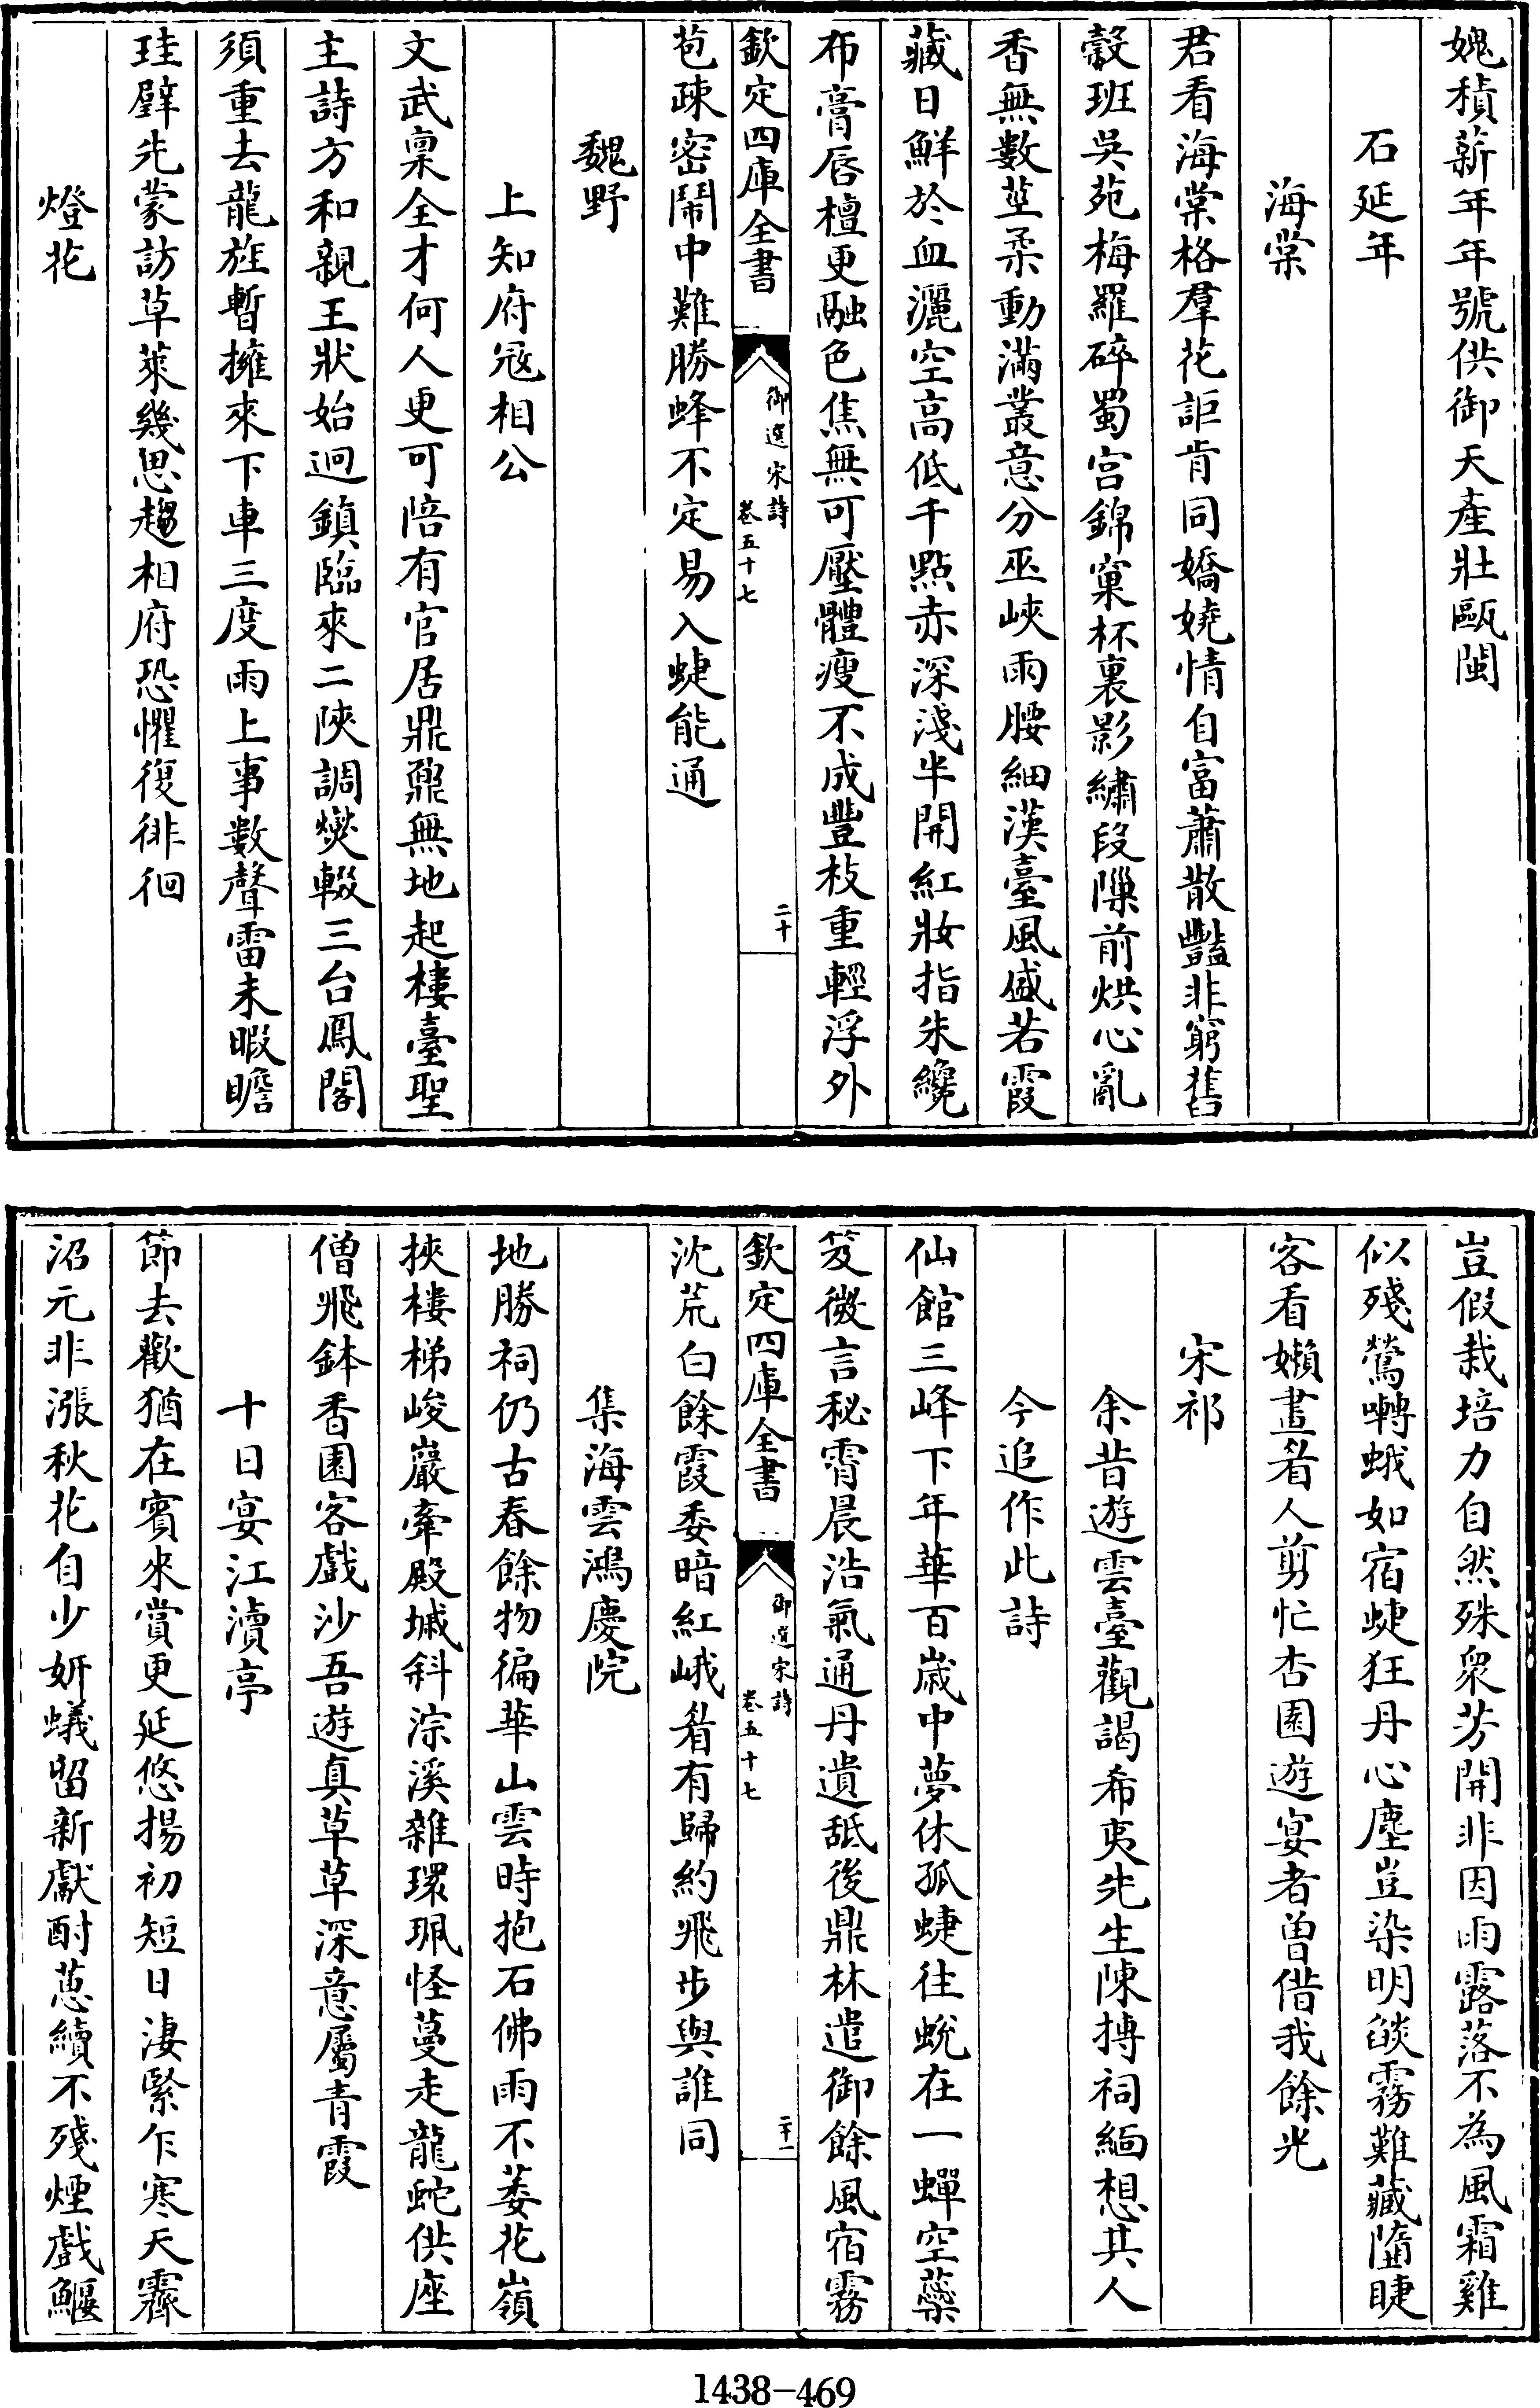 媿積薪年年號供御天產壯甌閩
石延年
海棠
君看海棠格羣花詎肯同嬌嬈情自富蕭散豔非窮舊
縠班吳苑梅羅碎蜀宫錦窠杯裏影繡段隟前烘心亂
香無數莖柔動滿叢意分巫峽雨腰細漢臺風盛若霞
藏日鮮於血灑空高低千點赤深淺半開紅妝指朱纔
布膏唇檀更融色焦無可壓體瘦不成豐枝重輕浮外
欽定四庫全書
御選宋詩
卷五十七
二十
苞疎密鬧中難勝蜂不定易入蜨能通
魏野
上知府冦相公
文武稟全才何人更可陪有官居鼎鼐無地起樓臺聖
主詩方和親王狀始迴鎮臨來二陜調爕輟三台鳳閣
須重去龍旌暫擁來下車三度雨上事數聲雷未暇瞻
珪璧先蒙訪草萊幾思趨相府恐懼復徘徊
燈花
豈假栽培力自然殊衆芳開非因雨露落不為風霜雞
似殘鶯囀蛾如宿蜨狂丹心塵豈染明燄霧難藏隋睫
客看嬾晝眷人剪忙杏園遊宴者曽借我餘光
宋祁
余昔遊雲臺觀謁希夷先生陳摶祠緬想其人
今追作此詩
仙館三峰下年華百歲中夢休孤蜨往蛻在一蟬空蘂
笈微言秘霄晨浩氣通丹遺舐後鼎林遣御餘風宿霧
欽定四庫全書
御選宋詩
卷五十七
二十一
沈荒白餘霞委暗紅峨眉有歸約飛步與誰同
集海雲鴻慶院
地勝祠仍古春餘物徧華山雲時抱石佛雨不萎花嶺
挾樓梯峻巖牽殿墄斜淙溪雜環珮怪蔓走龍蛇供座
僧飛鉢香園客戲沙吾遊真草草深意屬青霞
十日宴江瀆亭
節去歡猶在賓來賞更延悠揚初短日凄緊乍寒天霽
沼元非漲秋花自少妍蟻留新獻酎蒠續不殘煙戲鰋
1438-469